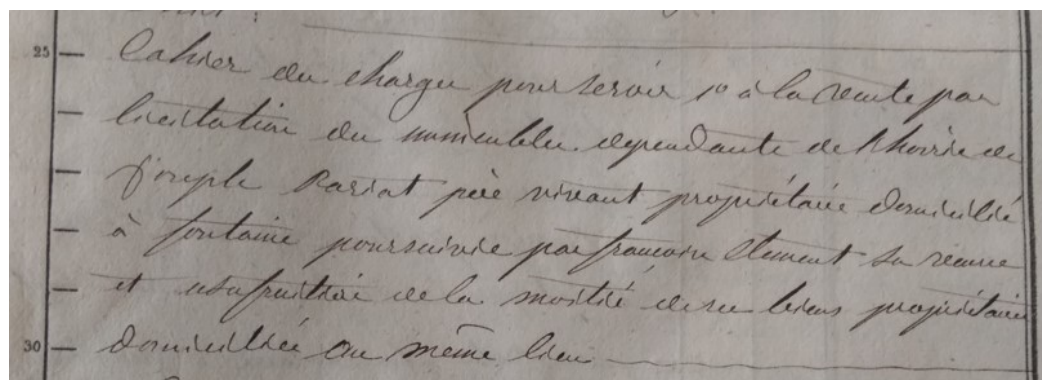 25
Cahier des charges pour servir 1° à la vente par
licitation des immeubles dependants de l'hoirie de
Joseph Pariat père vivant propriétaire domicilié
à fontaine poursuivie par francoise Clement sa veuve
et usufruitière de la moitié de ses biens propriétaire
30 domiciliée au même lieu